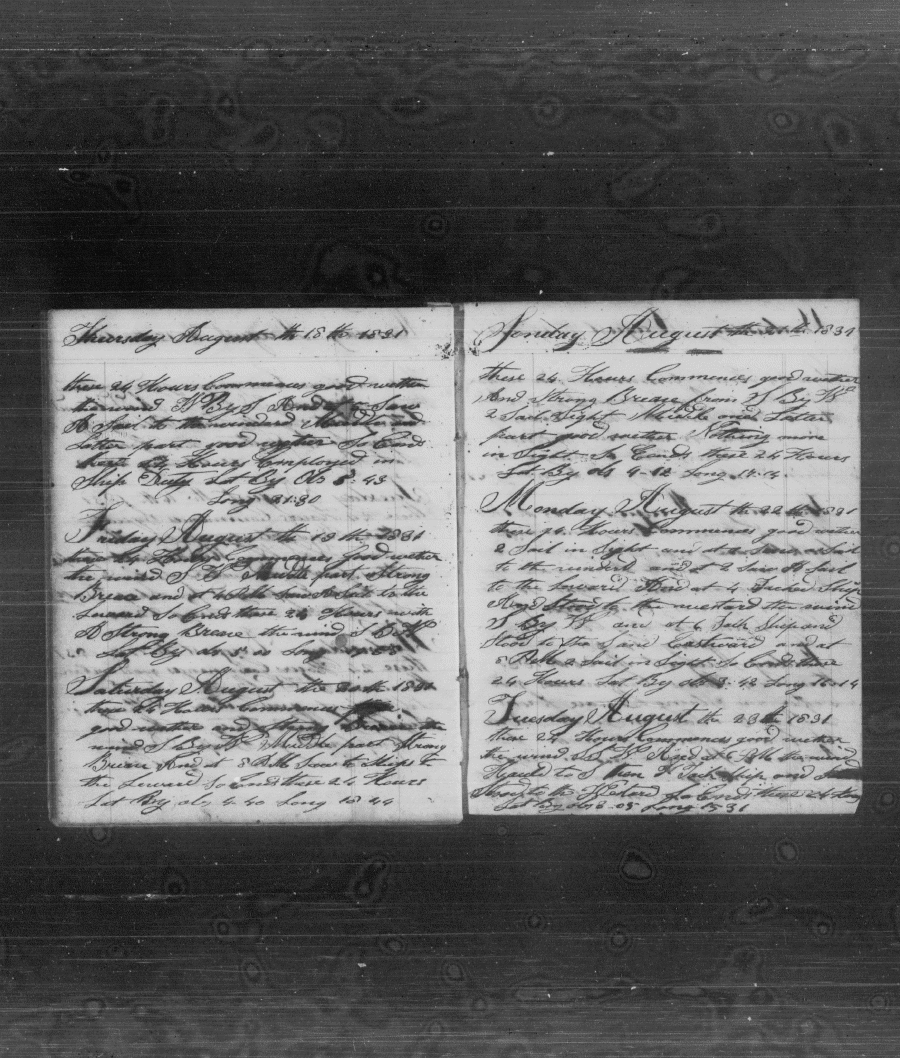 Thursday August th 18 th 1831
these 24 Hours Commences good wether
the wind W By S And at Saw
A Sail to the winward Middle and
Latter part good wether So Ends
these 24 Hours Employed in
Ship Duty Lat By Obs 5: 43
Long 21:30
Friday August the 19 th 1831
these 24 Hours Commences good wether
the wind S W Middle part Strong
Breaze and at 4 PM Saw A Sail to the
Leward So Ends these 24 Hours with
A Strong Breaze the wind S B W
Lat By obs 5: Long
Saturday August the 20 th 1831
these 24 Hours Commences
good wether and Strong
wind S By W Middle part Strong
Breaze And at 5 PM Saw to Ships to
the Leward So Ends these 24 Hours
Lat By obs 4:40 Long 18 24
Sonday August the th 1831
these 24 Hours Commences good wether
And strong Breaze from S By W
2 Sail Sight Middle and Latter
part good wether Nothing more
in Sight So Ends these 24 Hours
Lat By obs 4-12 Long 17:14
Monday August th 22 th 1831
these 24 Hours Commences good wether
2 Sail in Sight and at Saw a Sail
to the windard and at 2 Saw A Sail
to the Leward And at 4 Tacked Ship
And Stood to the westard the wind
S By W and at 6 Tack Ship and
Stood to the S and Eastward and at
PM 2 Sail in Sight So Ends these
24 Hours Lat By obs 3: 42 Long 16:14
Tuesday August th 23 th 1831
these 24 Hours Commences good wether
the wind S W And at PM the wind
Hauld to S then Tack Ship and
Stood to the Westard So Ends these 24 Hours
Lat By obs 3:05 Long 15:31